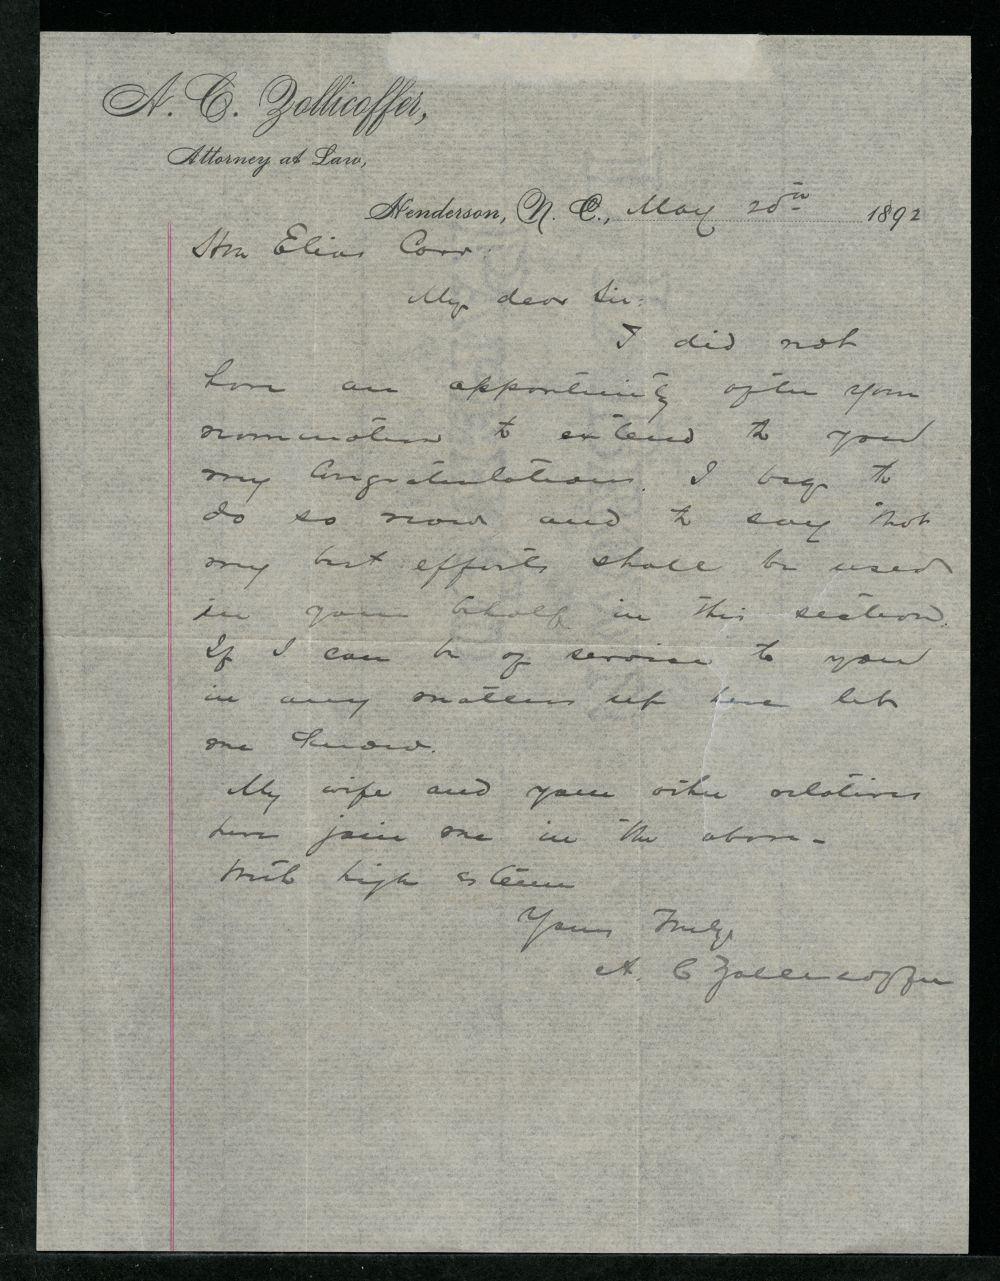 A. C. Zollicoffer,
Attorney at Law,
Henderson, N. C., May 20th 1892
Hon Elias Carr
My dear Sir:
I did not
have an opportunity after your
nomination to extend to you
my congratulations. I beg to
do so now and to say that
my best efforts shall be used
in your behalf in this section.
If I can be of service to you
in any matters up here let
me know.
My wife and your other relatives
here join me in the above -
With high esteem
Yours Truly,
A. C Zollicoffer